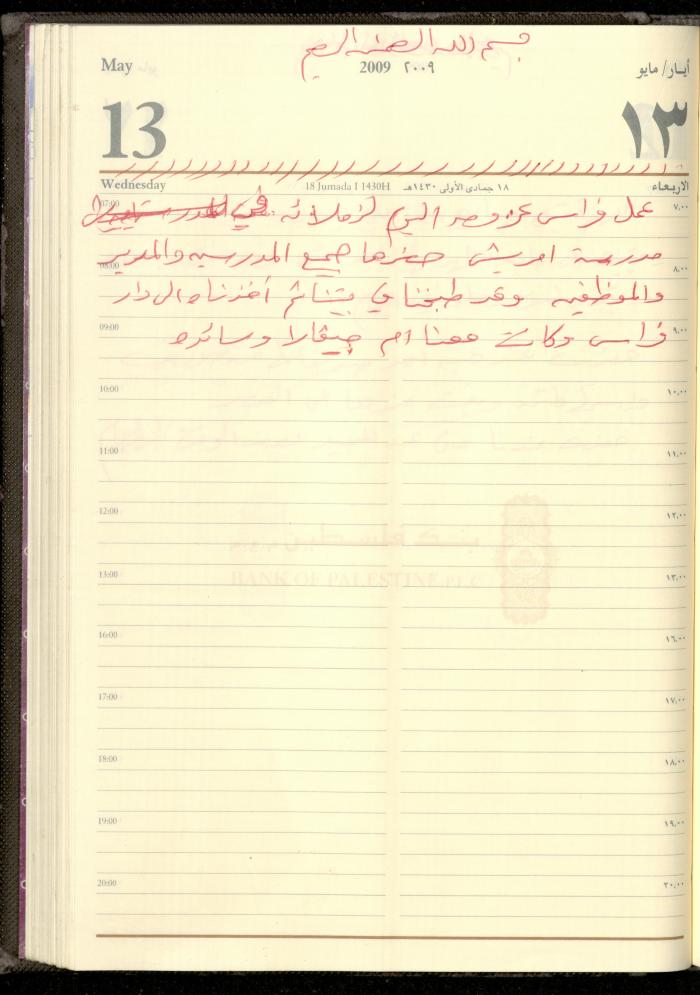 بسم الله الرحمن الرحيم
May
2009 ٢٠٠٩
أيار/ مايو
13
١٣
Wednesday
18 Jumada I 1430H
١٨ جمادى الأولى ١٤٣٠هـ
الاربعاء
07:00
٧,٠٠
عمل فراس عزومه اليوم لزملائه في
مدرسة امريش حضرها جميع المدرسين والمدير
08:00
٨,٠٠
والموظفين وقد طبخنا في اخذناه الى دار
09:00
٩,٠٠
فراس وكانت معنا ام جيفارا وسائده
10:00
١٠,٠٠
11:00
١١,٠٠
12:00
١٢,٠٠
بنك فلسطين م.ع.م
BANK OF PALESTINE P.L.C
13:00
١٣,٠٠
16:00
١٦,٠٠
17:00
١٧,٠٠
18:00
١٨,٠٠
19:00
١٩,٠٠
20:00
٢٠,٠٠